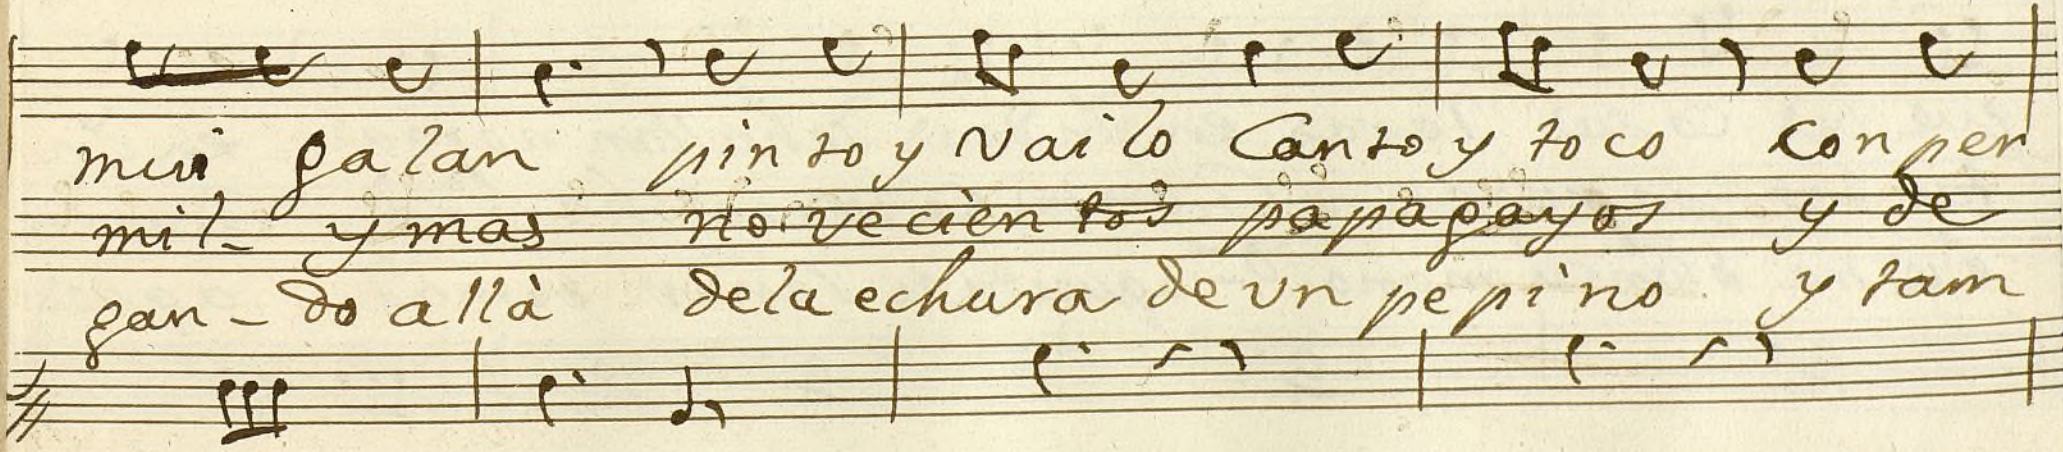 mui galan pinto y vailo Canto y toco Con per
mil - y mas novecientos papagayos y de
gan - do allà dela echura de vn pepino y tam